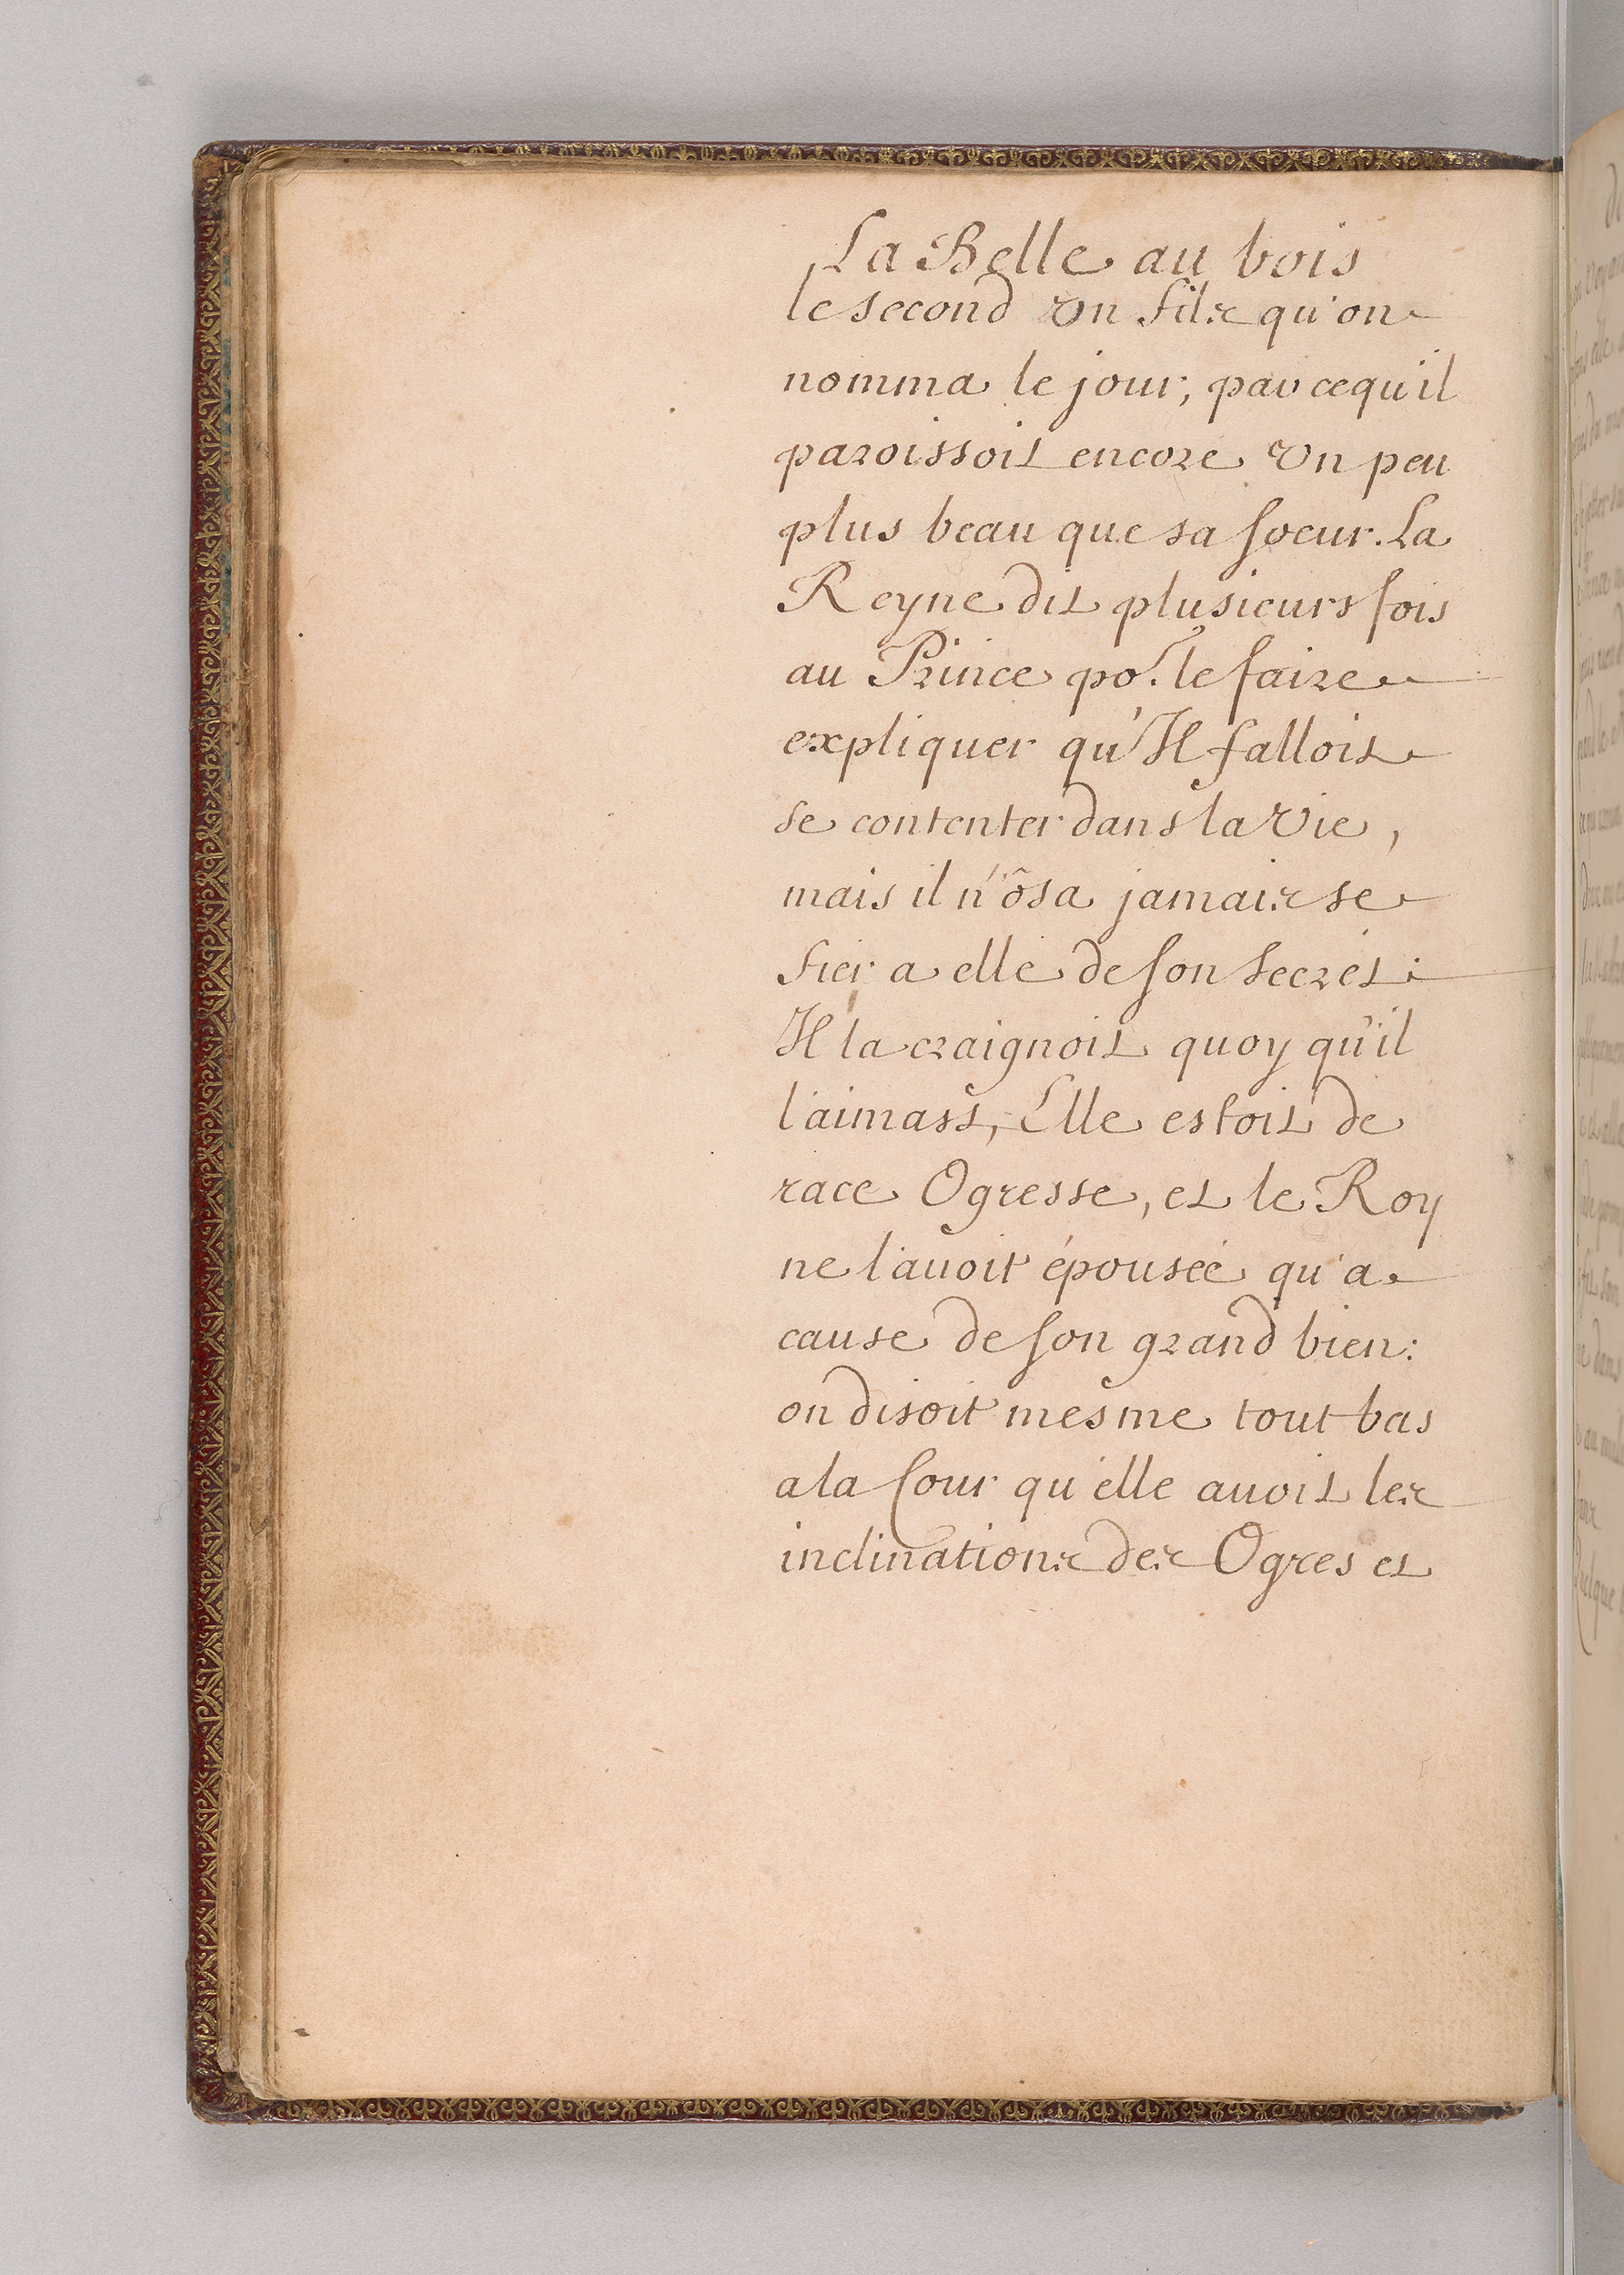 La Belle au bois
le second un fils qu'on
nomma le jour, par cequ'il
paroissoit encore un peu
plus beau que sa soeur. La
Reyne dit plusieurs fois
au Prince por. le faire
expliquer qu'Il falloit
se contenter dans la vie,
mais il n'ôsa jamais se
fier a elle de son secret:
Il la craignoit quoy qu'il
l'aimast, Elle estoit de
race Ogresse, et le Roy
ne l'auoit épouseé qu'a
cause de son grand bien:
on disoit mesme tout bas
a la Cour qu'elle auoit les
inclinations des Ogres et